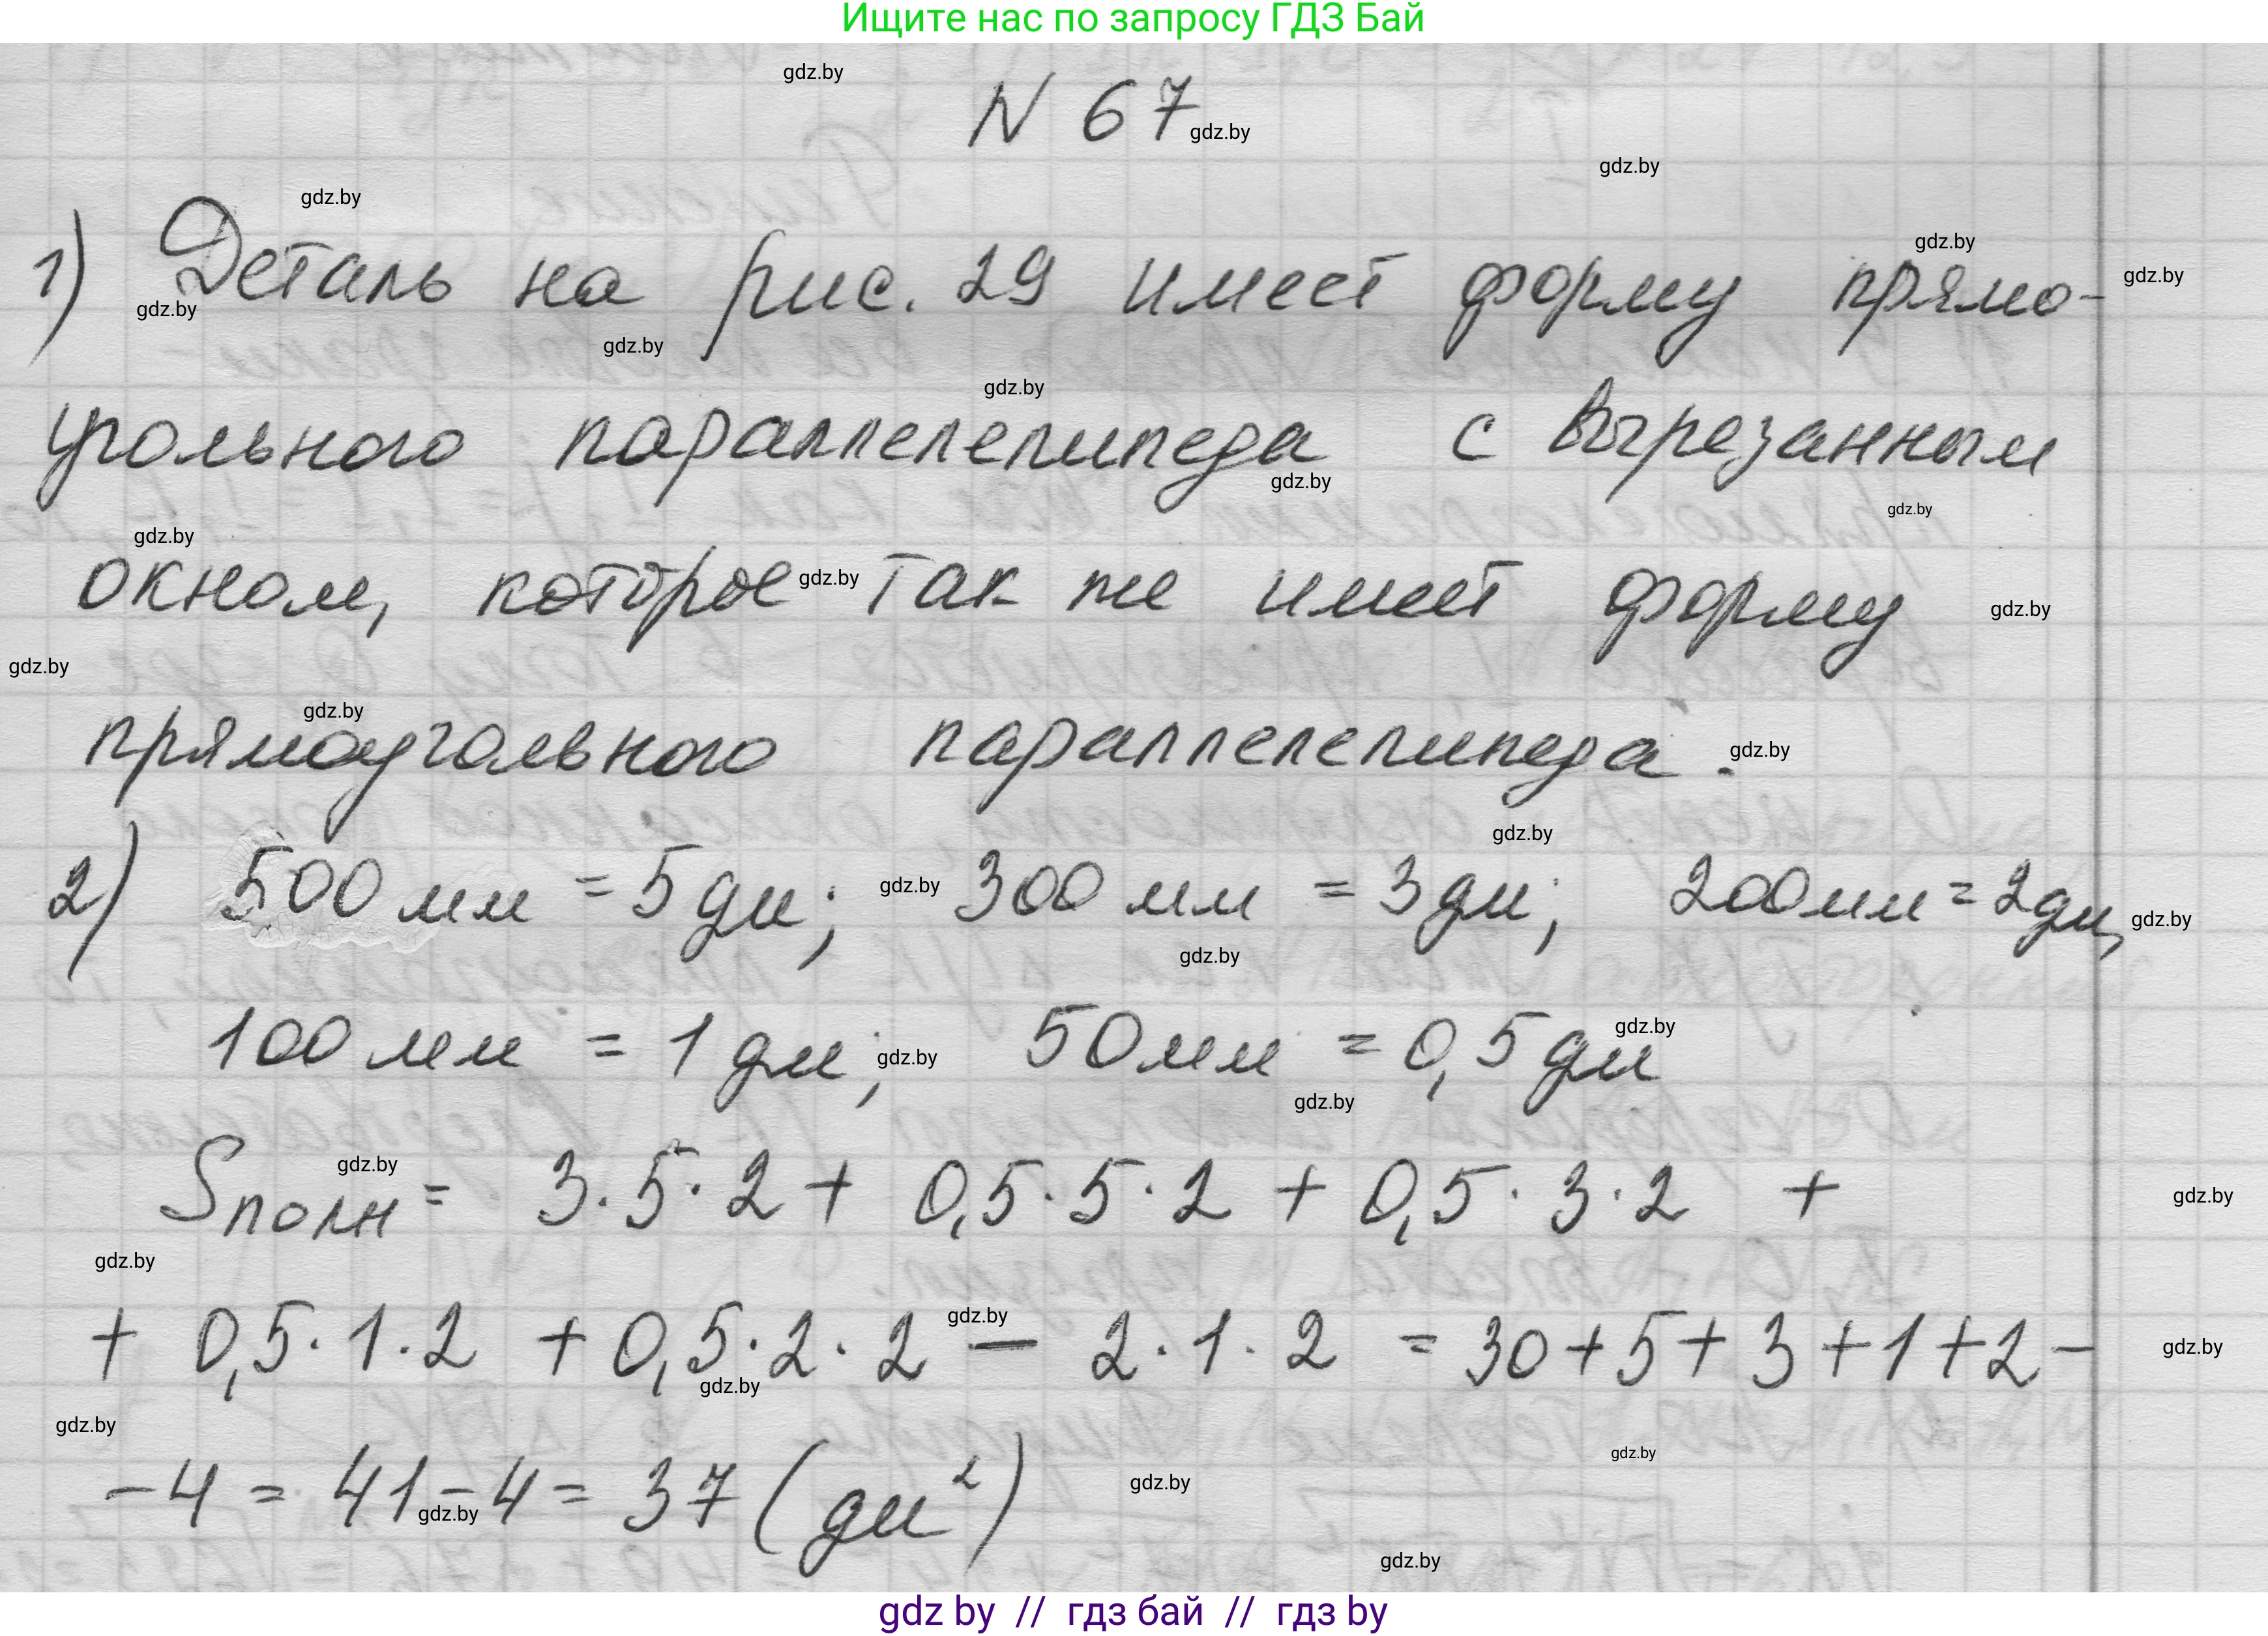 Ищите нас по запросу ГДЗ Бай
gdz.by
N 67 gdz.by
gdz.by
gdz.by
gdz.by
1) Деталь на рис. 29 имеет форму прямо- gdz.by
gdz.by
gdz.by
gdz.by
угольного параллелепипеда с вырезанным
gdz.by
gdz.by
gdz.by
окном, которое gdz.by так же имеет форму gdz.by
gdz.by
gdz.by
прямоугольного параллелепипеда. gdz.by
gdz.by
2) 500 мм = 5 дм; gdz.by 300 мм = 3 дм; 200 мм = 2 дм, gdz.by
gdz.by
gdz.by
100 мм = 1 дм; gdz.by 50 мм = 0,5 дм
gdz.by
gdz.by
Sполн = 3·5·2 + 0,5·5·2 + 0,5·3·2 + gdz.by
gdz.by
gdz.by
+ 0,5·1·2 + 0,5·2·2 - 2·1·2 = 30+5+3+1+2- gdz.by
gdz.by
gdz.by
gdz.by
-4 = 41-4 = 37 (дм²) gdz.by
gdz.by
gdz.by
gdz by // гдз бай // гдз by